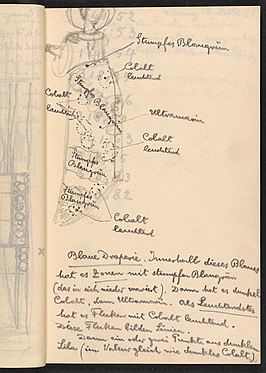 Stumpfes Blaugrün
Cobalt
leuchtend
Stumpfes Blaugrün
Cobalt
leuchtend
Ultramarin
Cobalt
leuchtend
Stumpfes
Blaugrün
Stumpfes
Blaugrün
Cobalt
leuchtend
Blaue Draperie. Innerhalb dieses Blaues
hat es Zonen mit stumpfem Blaugrün
(das in sich wieder variert). Dann hat es dunkel
Cobalt, dann Ultramarin. Als Leuchtendstes
hat es Flecken mit Cobalt leuchtend.
Diese Flecken bilden Linien.
Dann ein oder zwei Punkte aus dunklem
Lila (im Valeur gleich, wie dunkles Cobalt.)